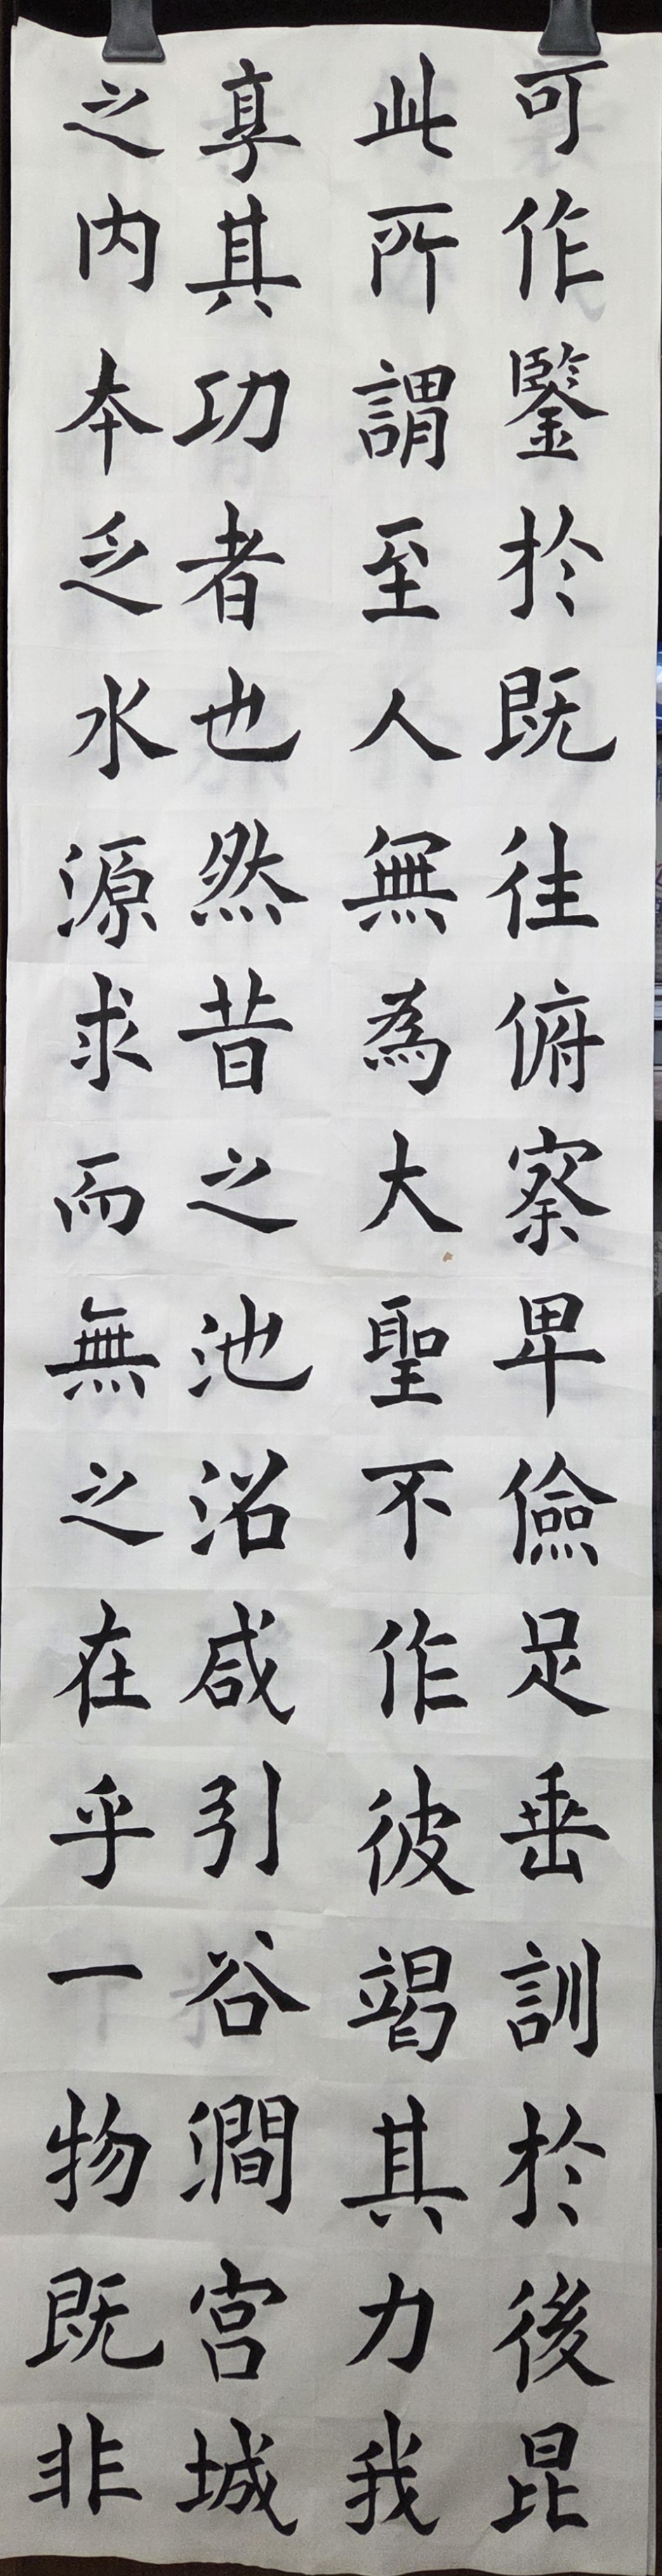 可作鑒於既往俯察卑儉足垂訓於後昆
此所謂至人無為大聖不作彼竭其力我
享其功者也然昔之池沼咸引谷澗宮城
之内本乏水源求而無之在乎一物既非